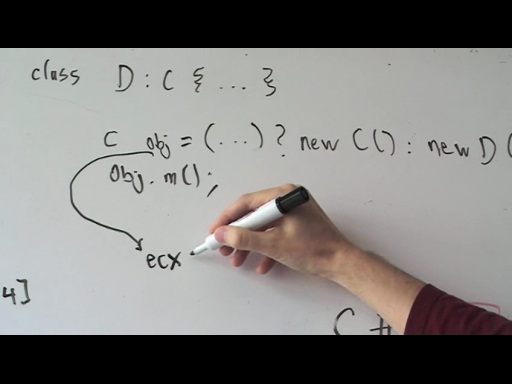 class D : C { ... }
C obj = (...) ? new C() : new D (
obj . m() ;
ecx
4]
C #